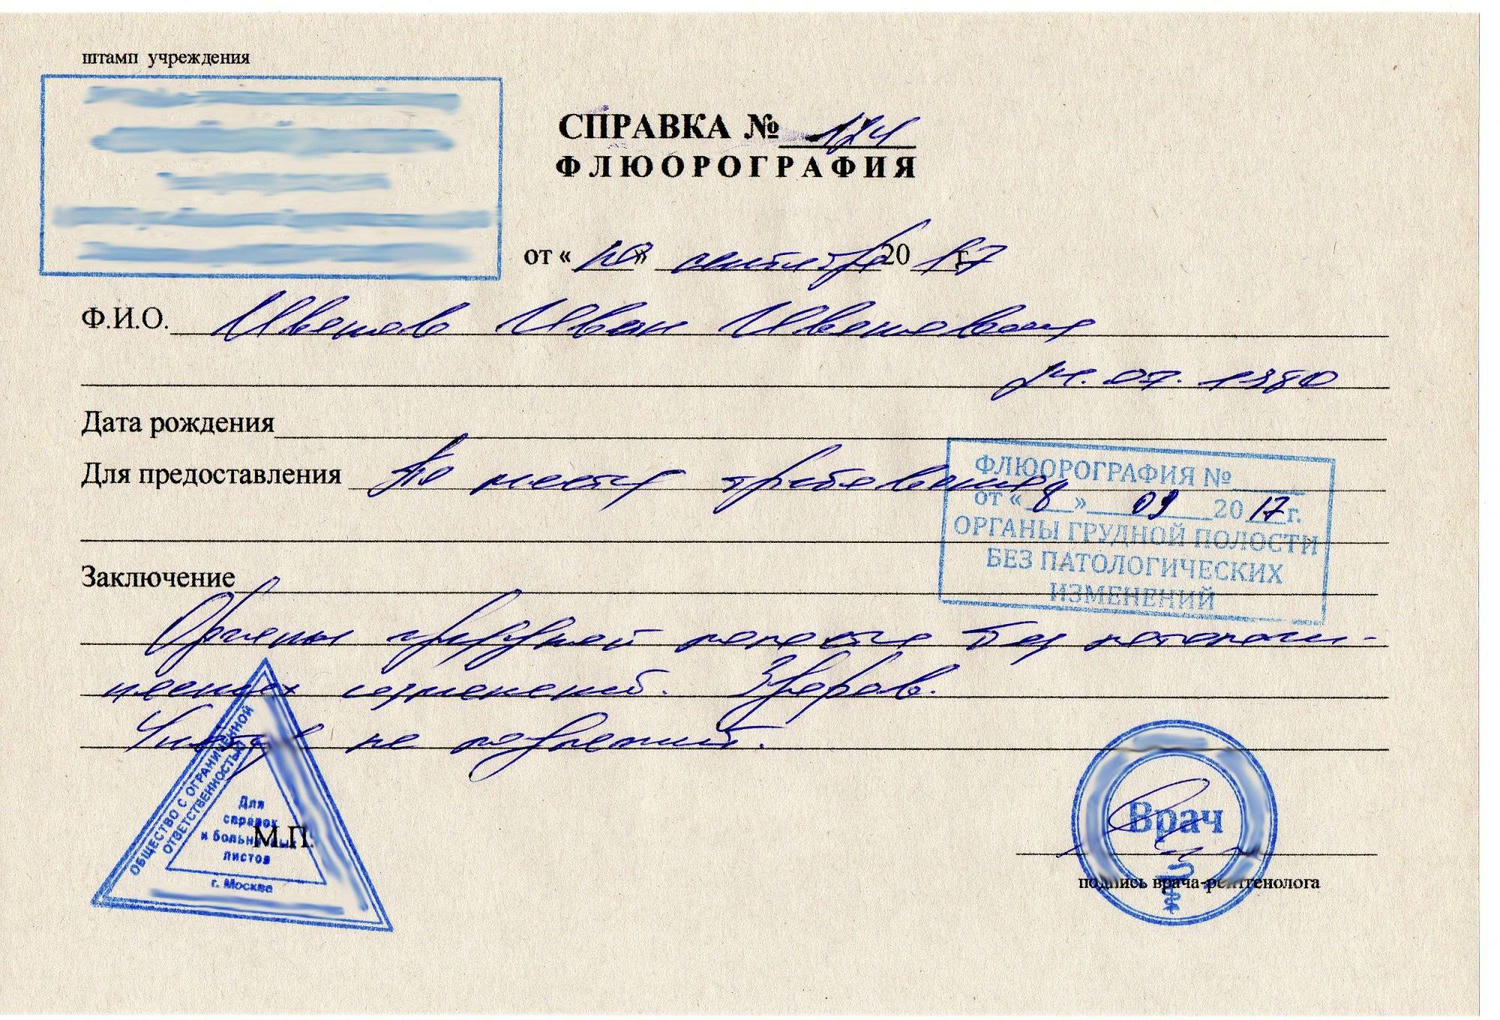 штамп учреждения
СПРАВКА № 174
ФЛЮОРОГРАФИЯ
от « 10 » сентября 20 17 г.
Ф.И.О. Иванов Иван Иванович
14.07.1980
Дата рождения
Для предоставления По месту требования
ФЛЮОРОГРАФИЯ №
от « 8 » 09 20 17 г.
ОРГАНЫ ГРУДНОЙ ПОЛОСТИ
БЕЗ ПАТОЛОГИЧЕСКИХ
ИЗМЕНЕНИЙ
Заключение
Органы грудной полости без патологи-
ческих изменений. Здоров.
не
ОБЩЕСТВО С ОГРАНИЧЕННОЙ
ОТВЕТСТВЕННОСТЬЮ
Для
справок
и больничных
листов
г. Москва
М.П.
Врач
подпись врача-рентгенолога